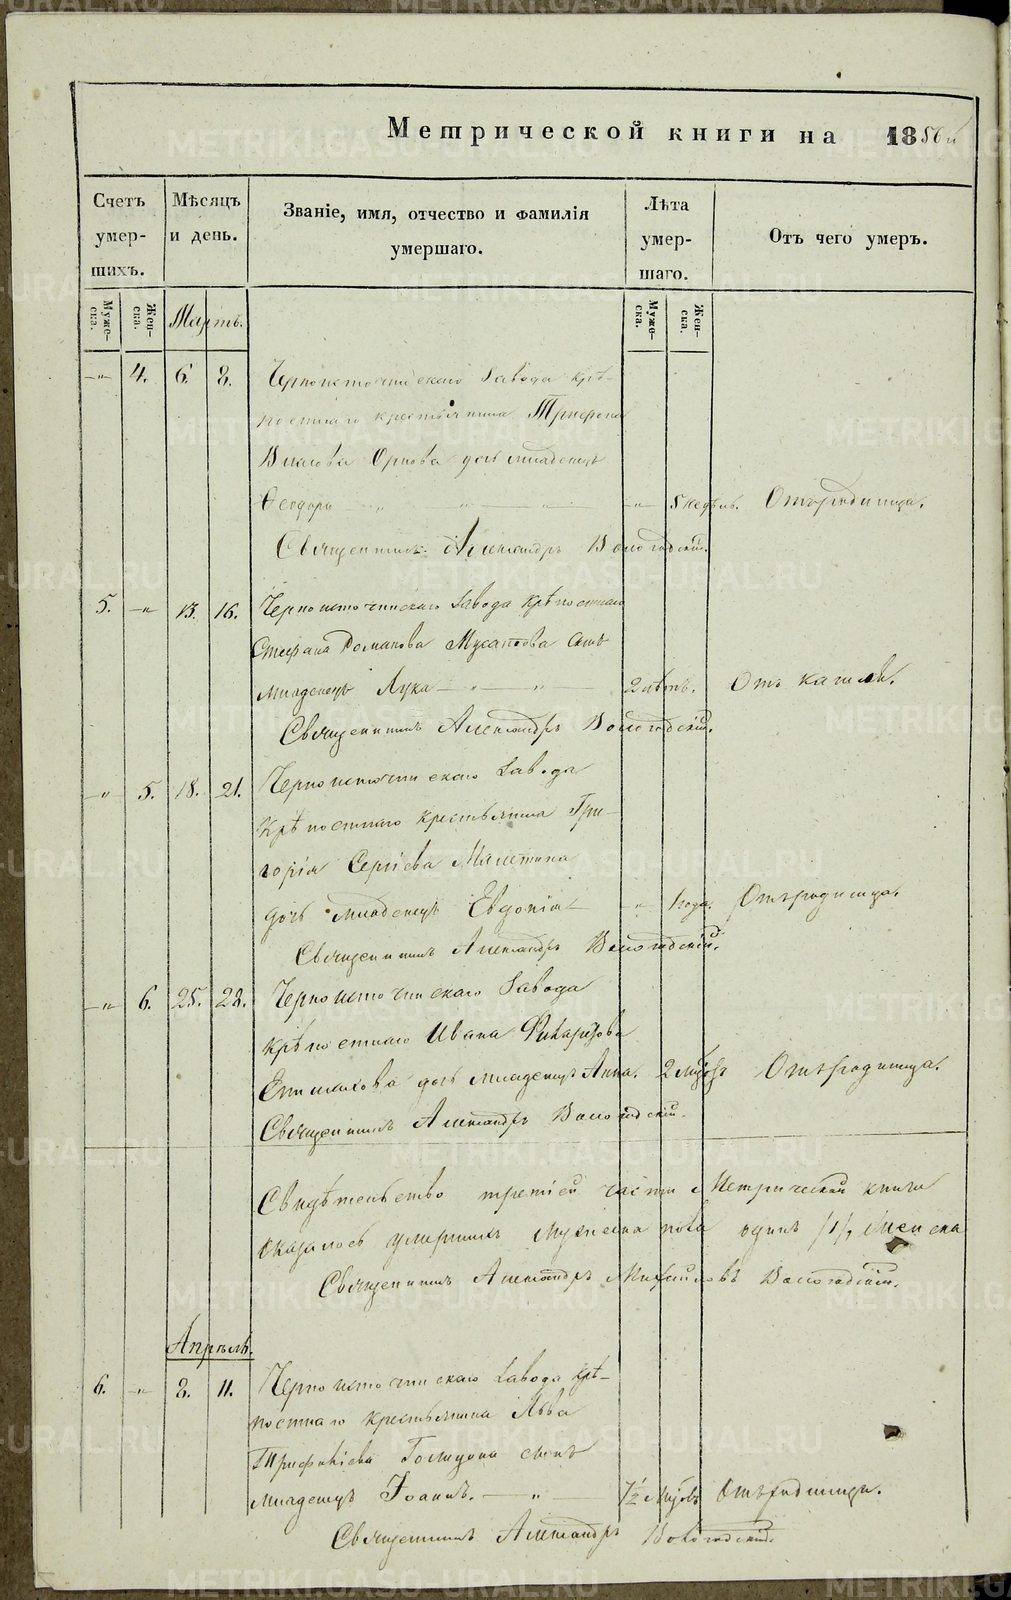 Метрической книги на 1856й
Счетъ умер-шихъ.
Мѣсяцъ и день.
Званіе, имя, отчество и фамилія умершаго.
Лѣта умер-шаго.
Отъ чего умеръ.
Муже-ска.
Жен-ска.
Мартъ.
Муже-ска.
Жен-ска.
-"- 4. 6. 8. Черноисточинскаго завода крѣ-
постнаго крестьянина Трифона
Власова Орлова дочь младенецъ
Ѳеодора " " " -"- 5 недѣль. Отъ родимца.
Священникъ Александръ Вологодскій.
5. -"- 13. 16. Черноисточинскаго завода крѣпостнаго
Стефана Романова Мусатова сынъ
младенецъ Лука " " 2 лѣтъ. Отъ кашля.
Священникъ Александръ Вологодскій.
-"- 5. 18. 21. Черноисточинскаго завода
крѣпостнаго крестьянина Гри-
горія Сергіева
дочь младенецъ Евдокія " 1 года. Отъ родимца.
Священникъ Александръ Вологодскій.
-"- 6. 25. 28. Черноисточинскаго завода
крѣпостнаго Ивана
дочь младенецъ Анна. 2 мѣсяц. Отъ родимца.
Священникъ Александръ Вологодскій.
Свидѣтельство третіей части Метрической книги
оказалось умершихъ мужеска пола одинъ /1/, женска
Священникъ Александръ Михайловъ Вологодскій.
Апрѣль.
6. -"- 8. 11. Черноисточинскаго завода крѣ-
постнаго крестьянина Льва
сынъ
младенецъ Іоаннъ. " 7½ мѣсяц. Отъ родимца.
Священникъ Александръ Вологодскій.
METRIKI.GASO-URAL.RU